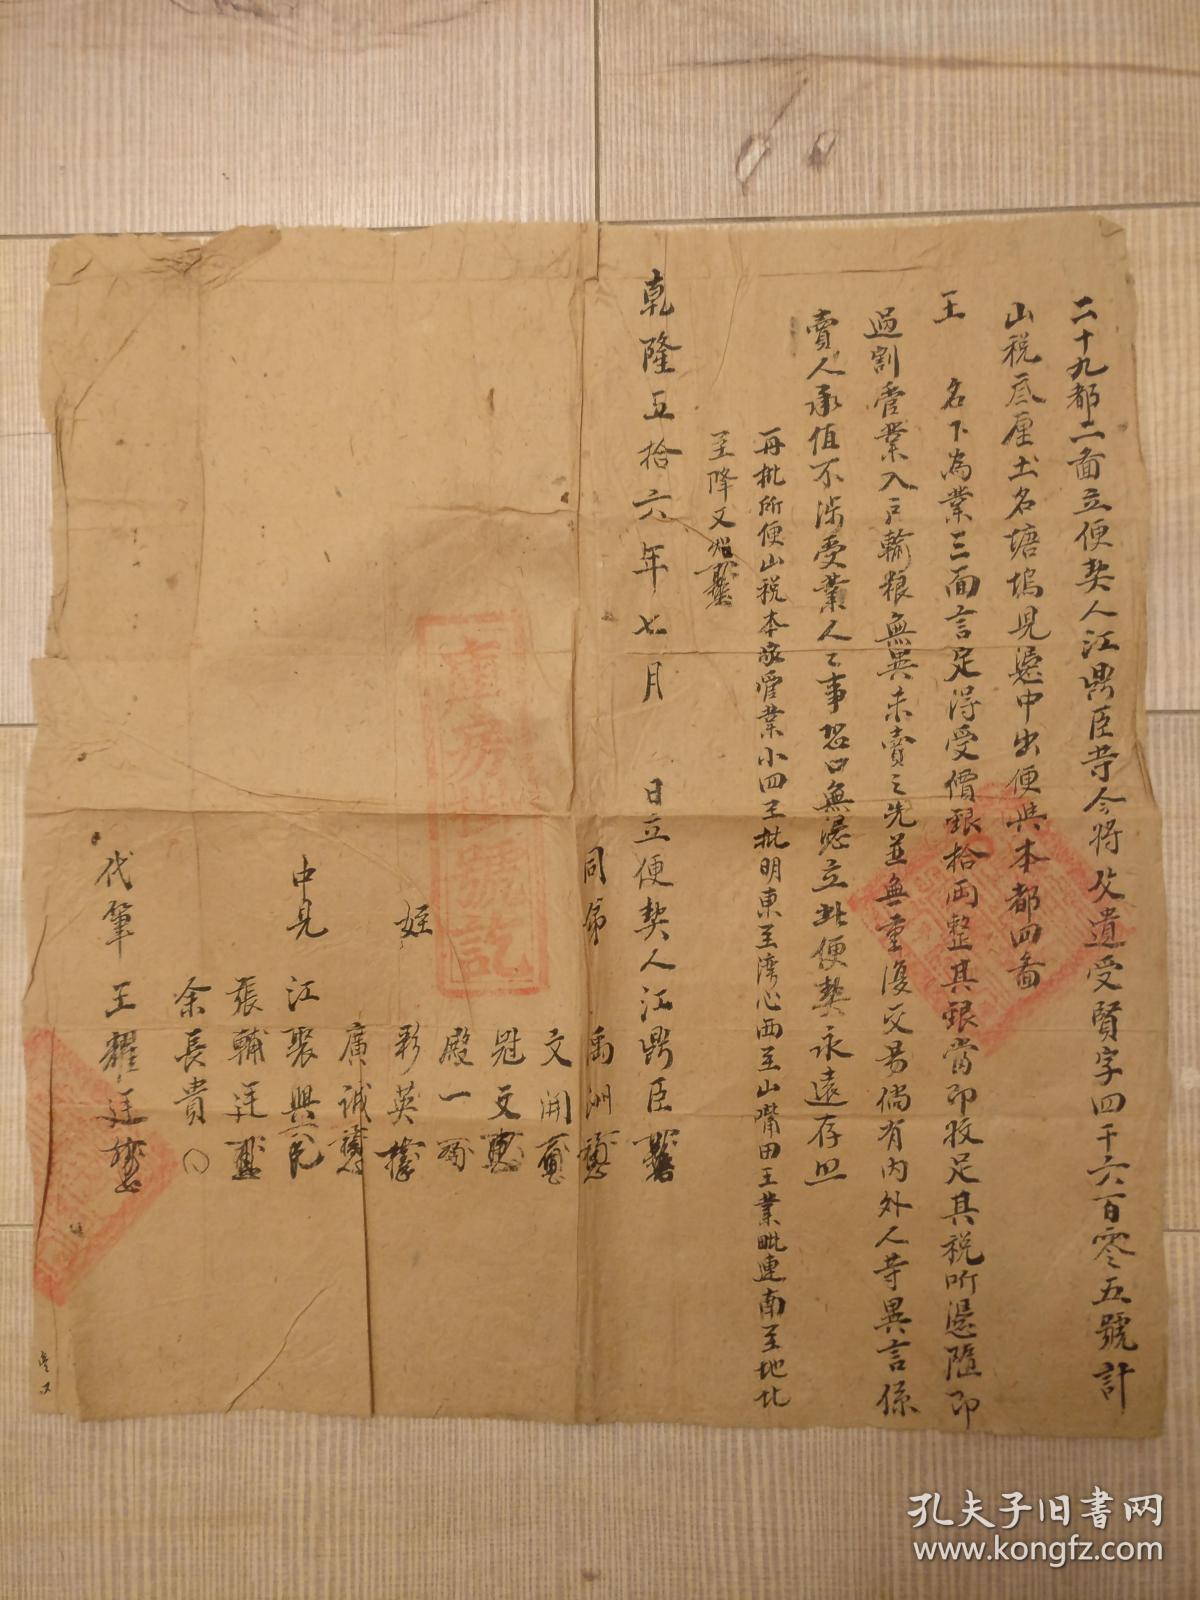 二十九都二啚立便契人江鼎臣等今将父遺受賢字四千六百零五號計
山税叁厘土名塘塢見凴中出便與本都四啚
王　名下為業三面言定得受價銀拾両整其銀當即收足其税听凴隨即
過割管業入户輸粮無異未賣之先並無重復交易倘有内外人等異言係
賣人承值不渉受業人之事恐口無凴立此便契永遠存照
再批所便山税本家管業小四至批明東至湾心西至山嘴田王業毗連南至地北
至降又照
乾隆五拾六年七月　日立便契人江鼎臣
同弟　禹洲
文開
冠文
姪　殿一
彩英
廣誠
中見　江聚興
張輔廷
余長貴
代筆　王耀廷
產房掛號訖
孔夫子旧书网
www.kongfz.com